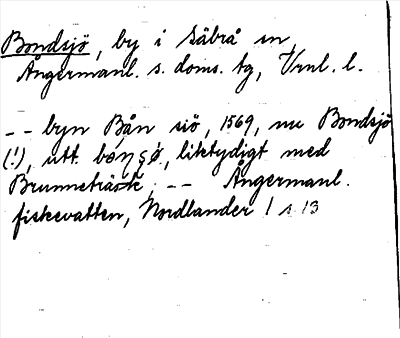 Bondsjö, by i Säbrå sn,
Ångermanl. s. doms. tg, Vrnl. l.
-- byn Bån siö, 1569, nu Bondsjö
(!), utt. bønsø, liktydigt med
Brunneträsk, -- Ångermanl.
fiskevatten, Nordlander 1 s. 13